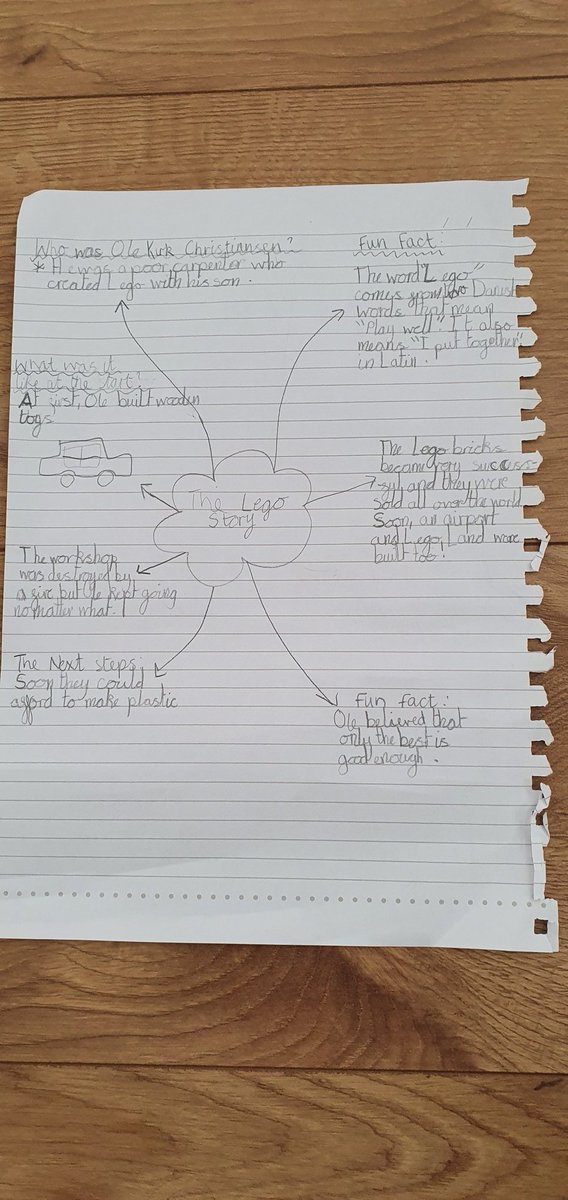 Who was Ole Kirk Christiansen?
* He was a poor carpenter who
created Lego with his son.
Fun Fact:
The word "Lego"
comes from two Danish
words that mean
"Play well". It also
means "I put together"
in Latin.
What was it
like at the start?
At first, Ole built wooden
toys
The Lego Story
The Lego bricks
became very success-
ful, and they were
sold all over the world.
Soon, an airport
and Lego Land were
built too!
The workshop
was destroyed by
a fire but Ole kept going
no matter what.
The Next steps:
Soon they could
afford to make plastic
Fun fact:
Ole believed that
only the best is
good enough.